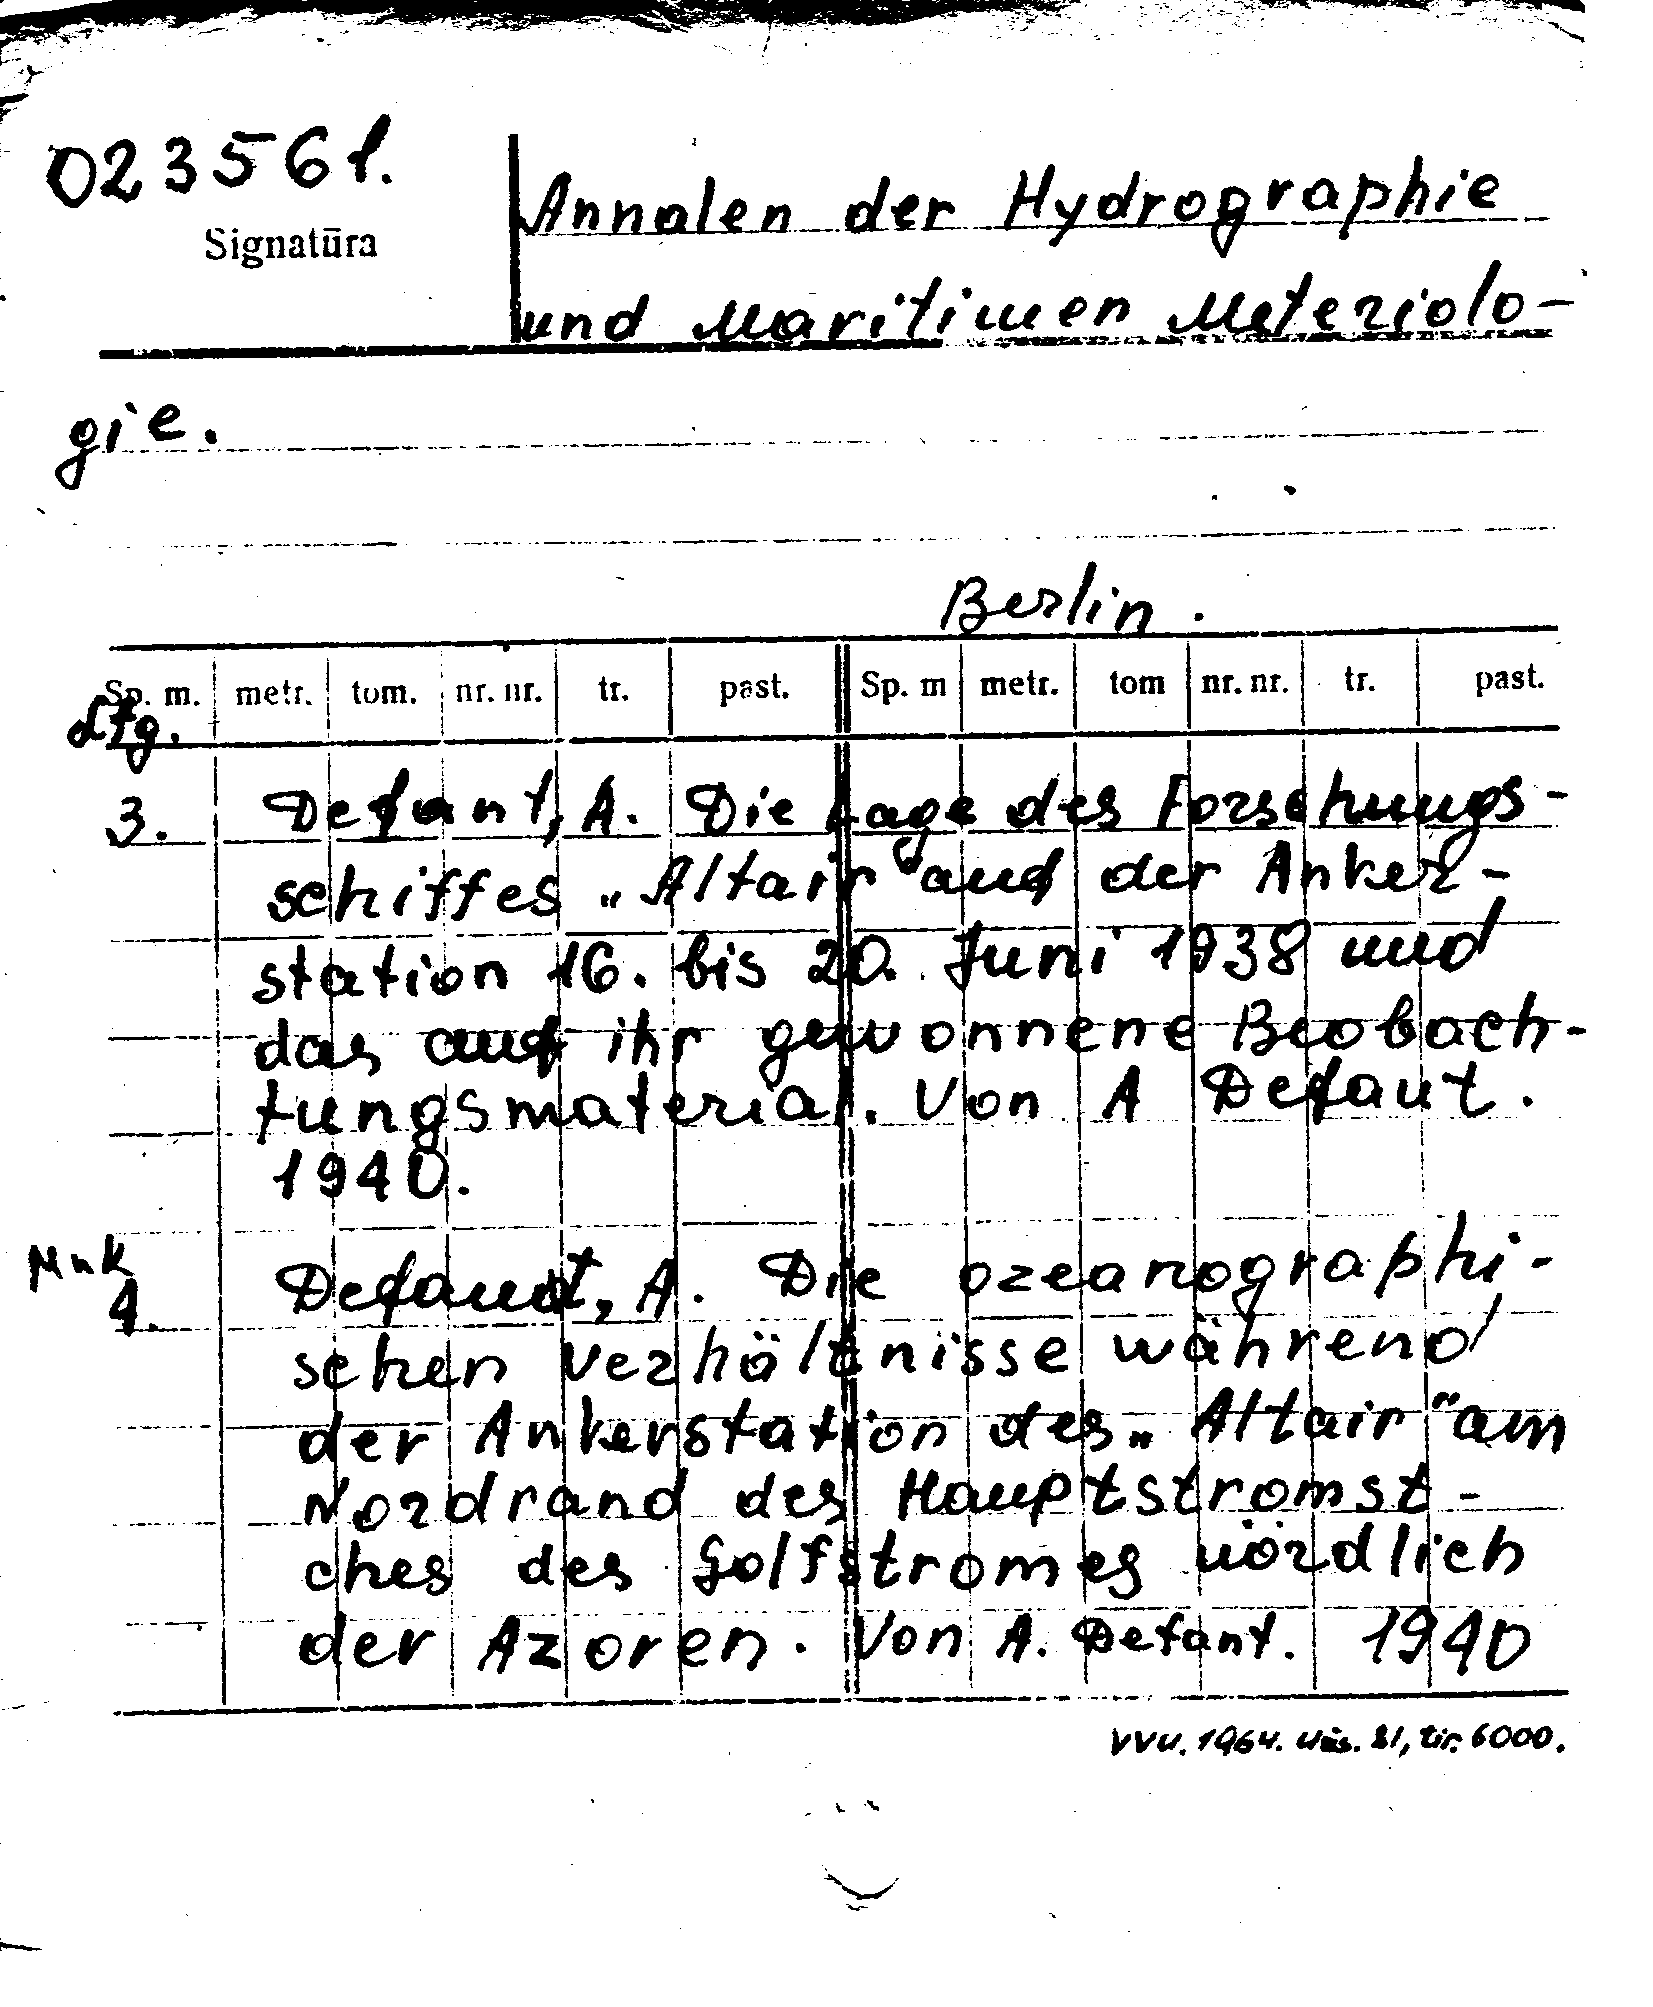 023561.
Signatūra
Annalen der Hydrographie
und Maritimen Meteriolo-
gie.
Berlin.
Sp. m. metr. tom. nr. nr. tr. past. Sp. m metr. tom nr. nr. tr. past.
Lfg.
3. Defant, A. Die Lage des Forschungs-
schiffes „Altair" auf der Anker-
station 16. bis 20. Juni 1938 und
das auf ihr gewonnene Beobach-
tungsmaterial. Von A Defant.
1940.
4. Defant, A. Die ozeanographi-
schen Verhältnisse während
der Ankerstation des „Altair" am
Nordrand des Hauptstromst-
ches des Golfstromes nördlich
der Azoren. Von A. Defant. 1940
VVU. 1964. Užs. 81, tir. 6000.